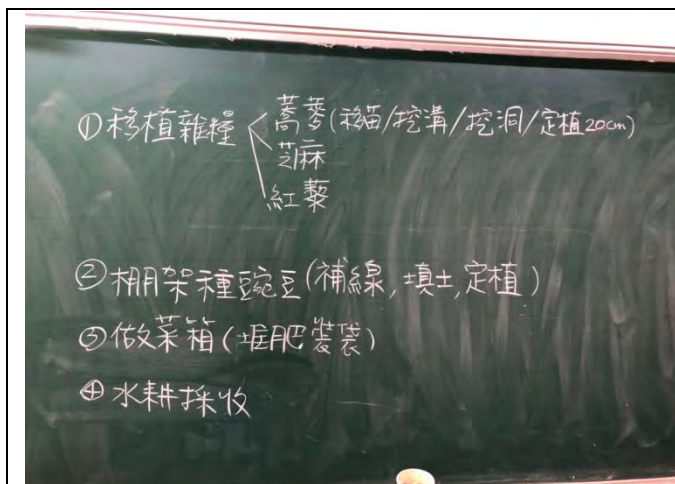 ①移植雜糧 蕎麥(移苗/挖溝/挖洞/定植20cm)
芝麻
紅藜
②棚架種豌豆(補線,填土,定植)
③做菜箱(堆肥裝袋)
④水耕採收